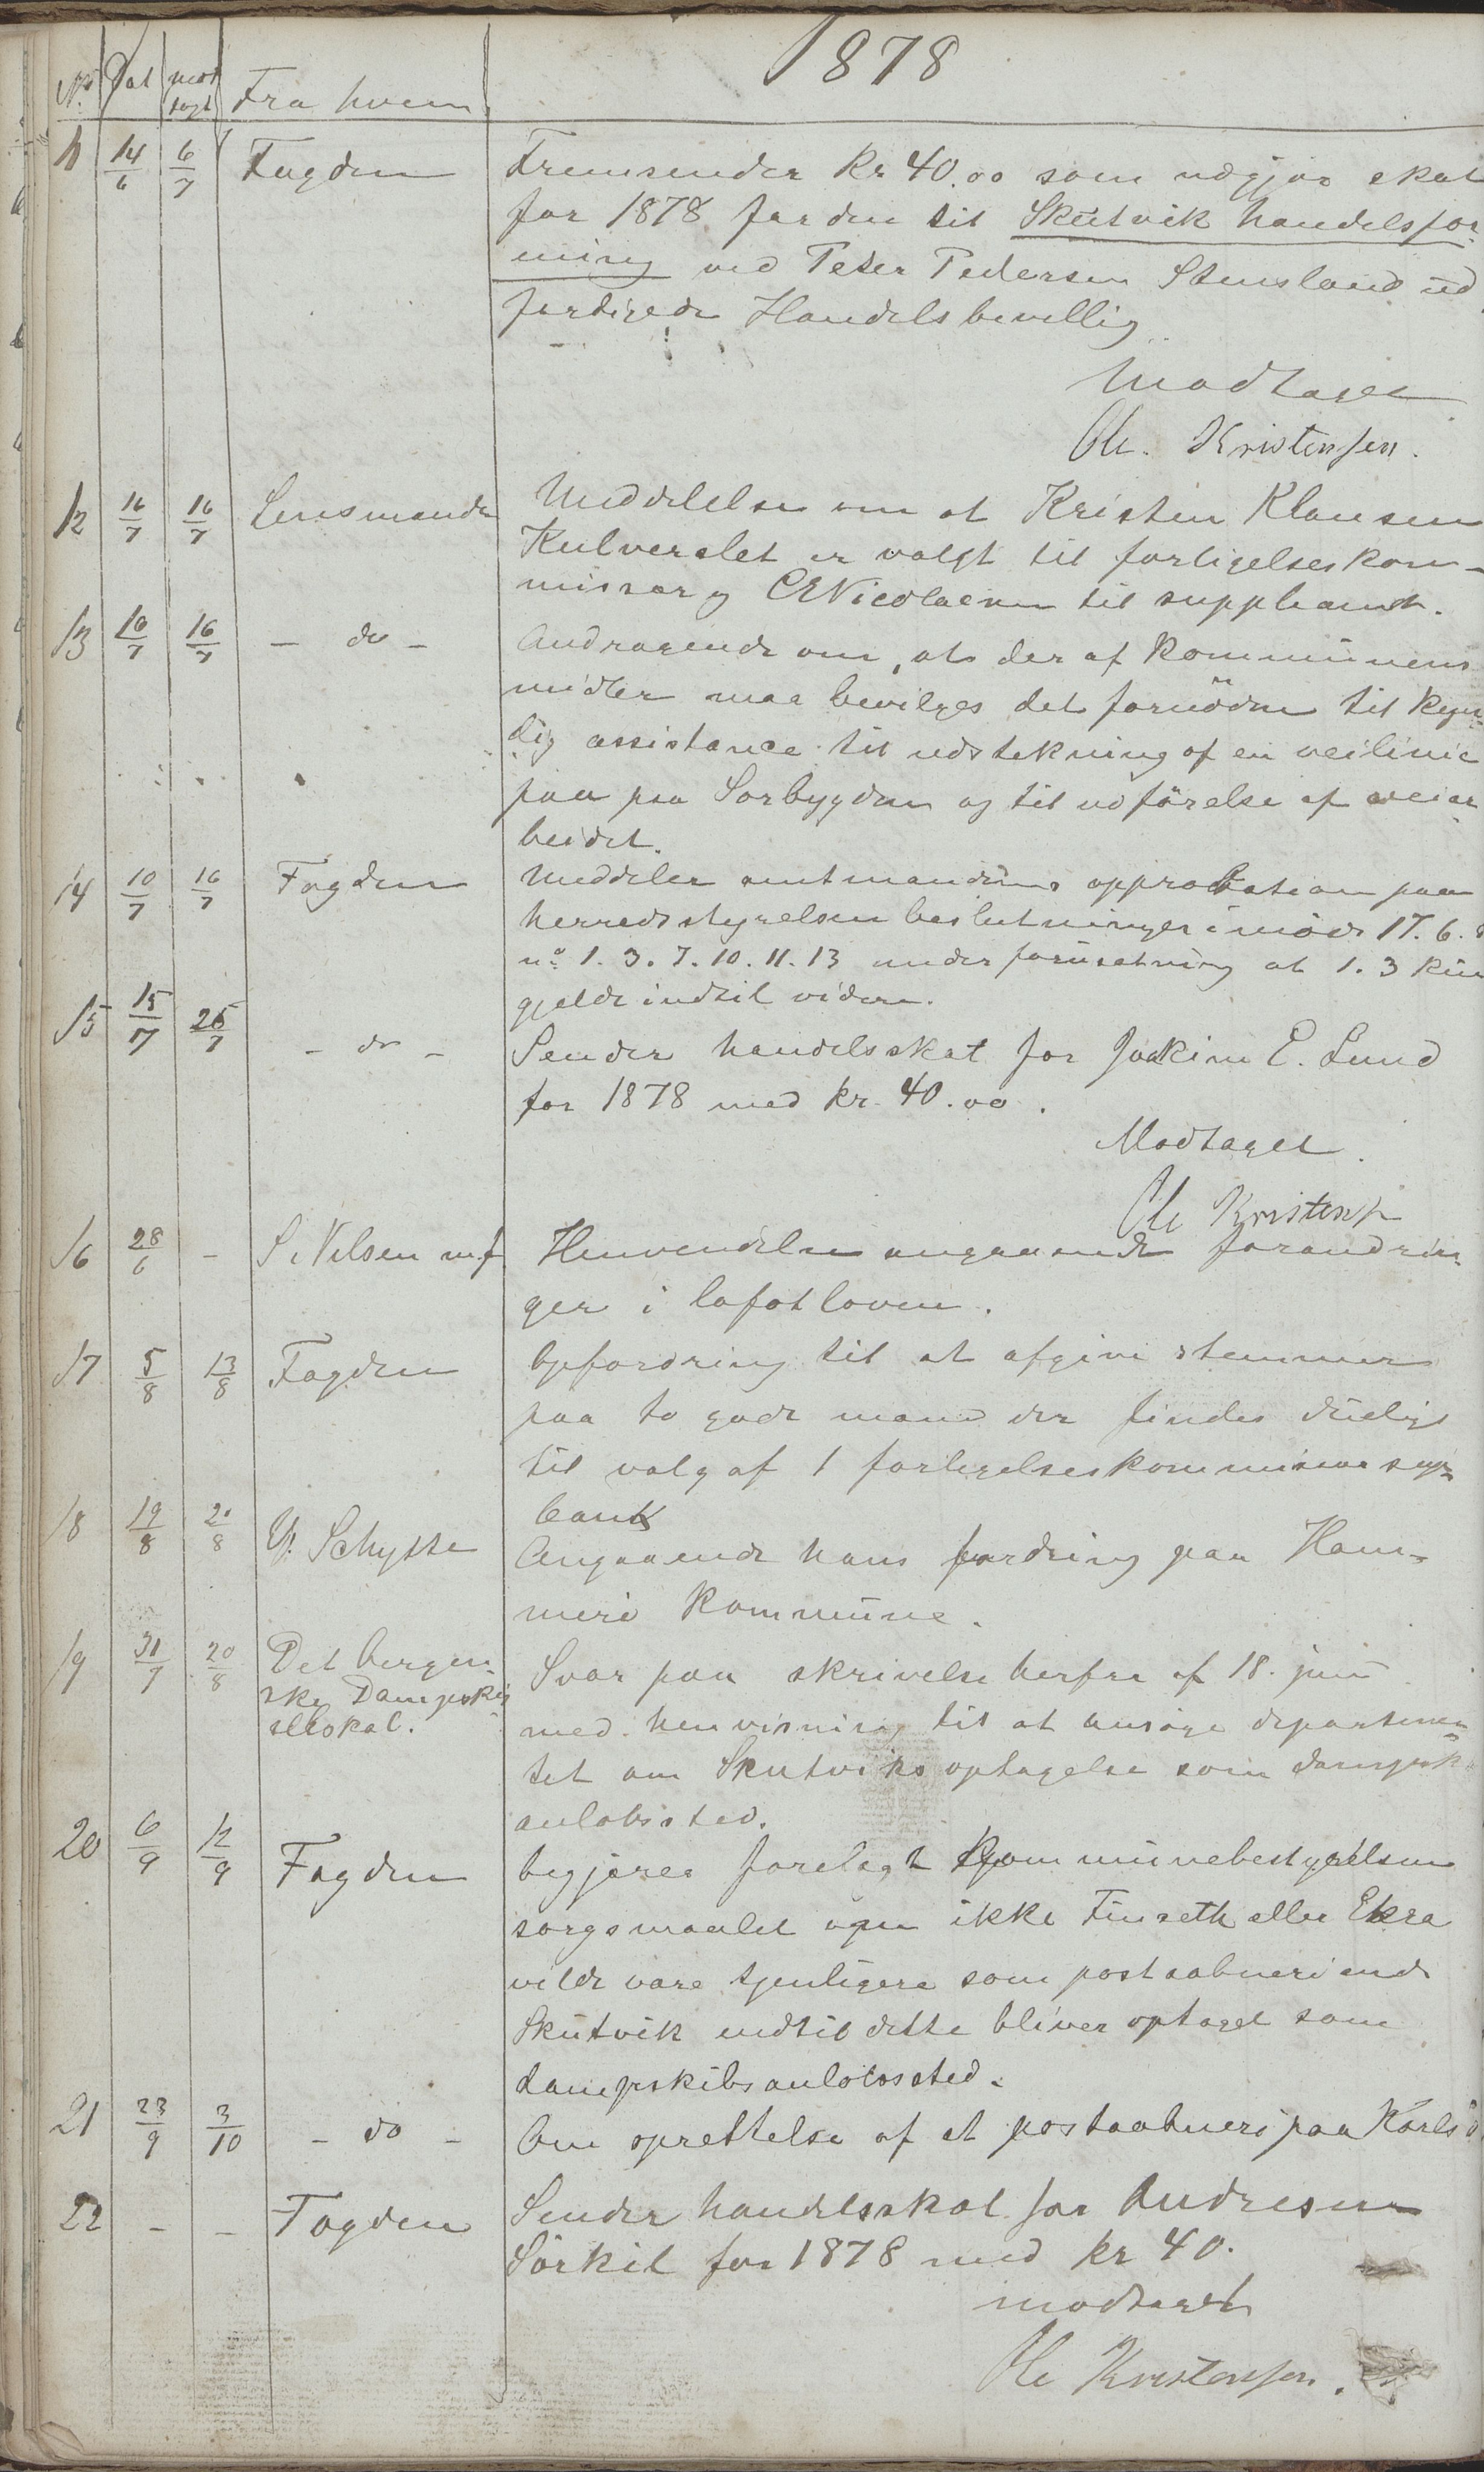 1878
No. Dat mod
tagt Fra hvem
11 14/6 6/7 Fogden Fremsender Kr 40.00 som udgjør skat
for 1878 for den til Skutvik handelsfor-
ening ved Peter Pedersen Stensland ud
ferdigede Handelsbevillig
Modtaget
Ole Kristensen.
12 16/7 16/7 Lensmanden Meddelelse om at Kristen Klausen
Kulverslet er valgt til forligelseskom-
missær og CE Nicolaisen til suppleant.
13 10/7 16/7 - do - Andragende om, at der af Kommunens
midler maa bevilges det fornødne til kyn-
dig assistance til udstekning af en veilinie
paa paa Sørbygden og til udførelse af veiar
beidet.
14 10/7 16/7 Fogden Meddeler amtmandens approbation paa
herredsstyrelsen beslutninger i møde 17.6.
no 1. 3. 7. 10. 11. 13 under forusetning at 1. 3 kun
gjelde indtil videre.
15 15/7 25/7 - do - Sender handelsskat for Joakim E. Lund
for 1878 med kr. 40.00.
Modtaget.
Ole Kristensen
16 28/6 - S Nilsen m.f Henvendelse angaaende forandrin-
ger i lofotloven.
17 5/8 13/8 Fogden Opfordring til at afgive stemmer
paa to gode mænd der findes duelige
til valg af 1 forligelseskommissær sup-
leant
18 19/8 20/8 Schytte Angaaende hans fordring paa Ham-
merø Kommune.
19 31/7 20/8 Det bergen-
ske Dampskibs
selskab. Svar paa skrivelse herfra af 18. juni
med henvisning til at ansøge departemen
tet om Skutviks optagelse som dampsk
anløbssted.
20 6/9 12/9 Fogden begjæres forelagt Kommunebestyrelsen
sørgsmaalet om ikke Finseth eller Ekra
vilde være tjenligere som postaabneri end
Skutvik indtil dette bliver optaget som
dampskibsanløbssted.
21 23/9 3/10 - do - Om oprettelse af et postaabneri paa Karlsö
22 - - Fogden Sender handelsskat for Andresen
Sörkil for 1878 med kr 40.
modtaget
Ole Kristensen.